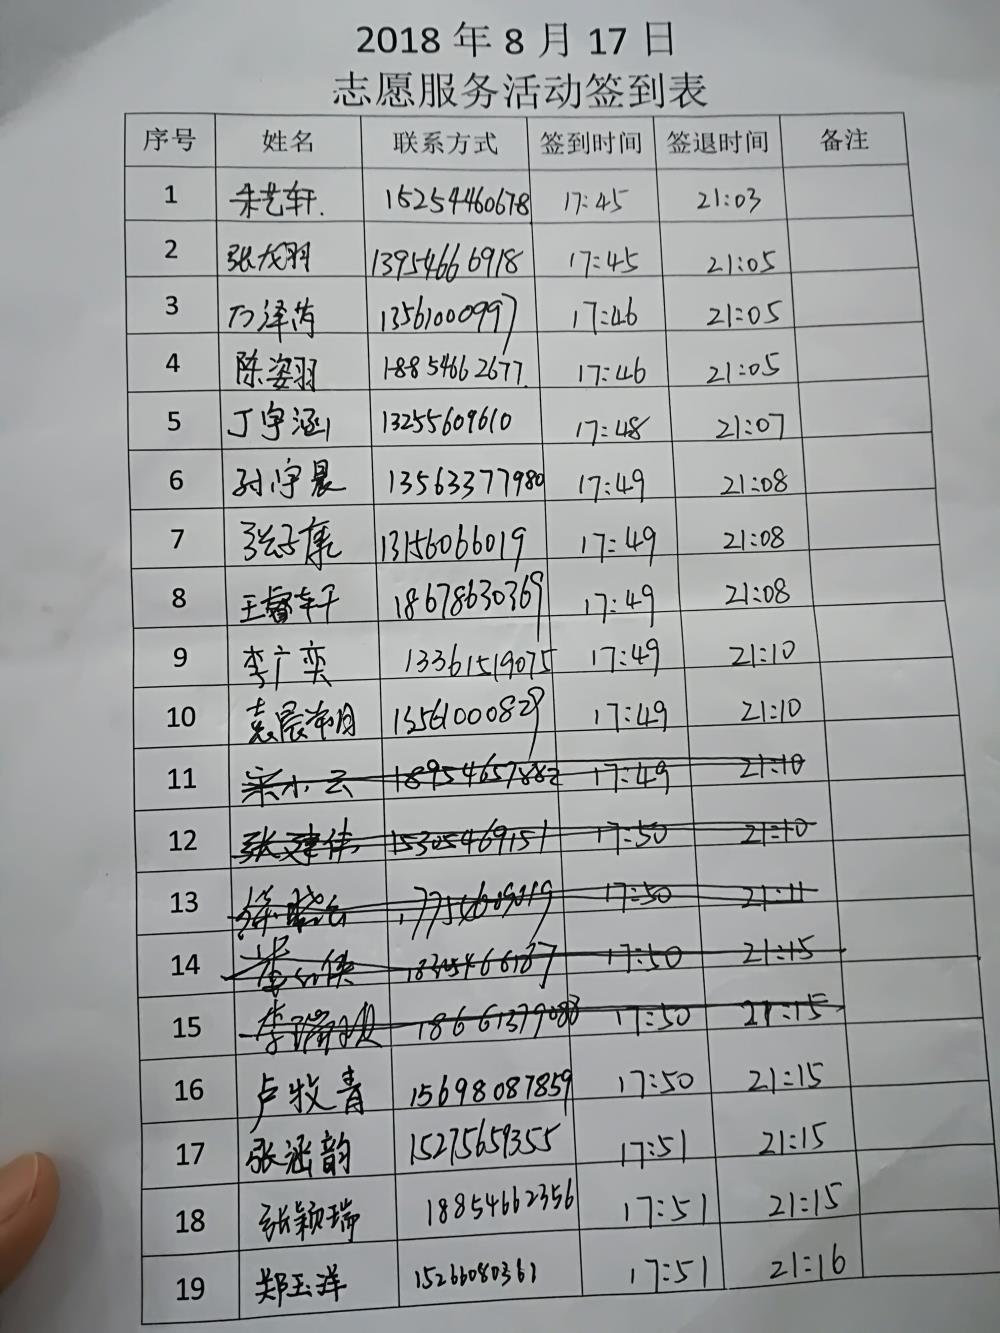 2018 年 8 月 17 日
志愿服务活动签到表
序号 姓名 联系方式 签到时间 签退时间 备注
1 朱艺轩. 15254460678 17:45 21:03
2 张龙羽 13954666918 17:45 21:05
3 万泽芮 13561000997 17:46 21:05
4 陈姿羽 18854662677. 17:46 21:05
5 丁宇涵 13255609610 17:48 21:07
6 孙宇晨 13563377980 17:49 21:08
7 张子康 13156066019 17:49 21:08
8 王睿轩 18678630369 17:49 21:08
9 李广奕 13361519075 17:49 21:10
10 袁晨 13561000829 17:49 21:10
11 宋小云 18954657882 17:49 21:10
12 张建伟 15305469151 17:50 21:10
13 17:50 21:11
14 17:50 21:15
15 18661379083 17:50 21:15
16 卢牧青 15698087859 17:50 21:15
17 张涵韵 15275659355 17:51 21:15
18 张颖瑞 18854662356 17:51 21:15
19 郑玉洋 15266080361 17:51 21:16